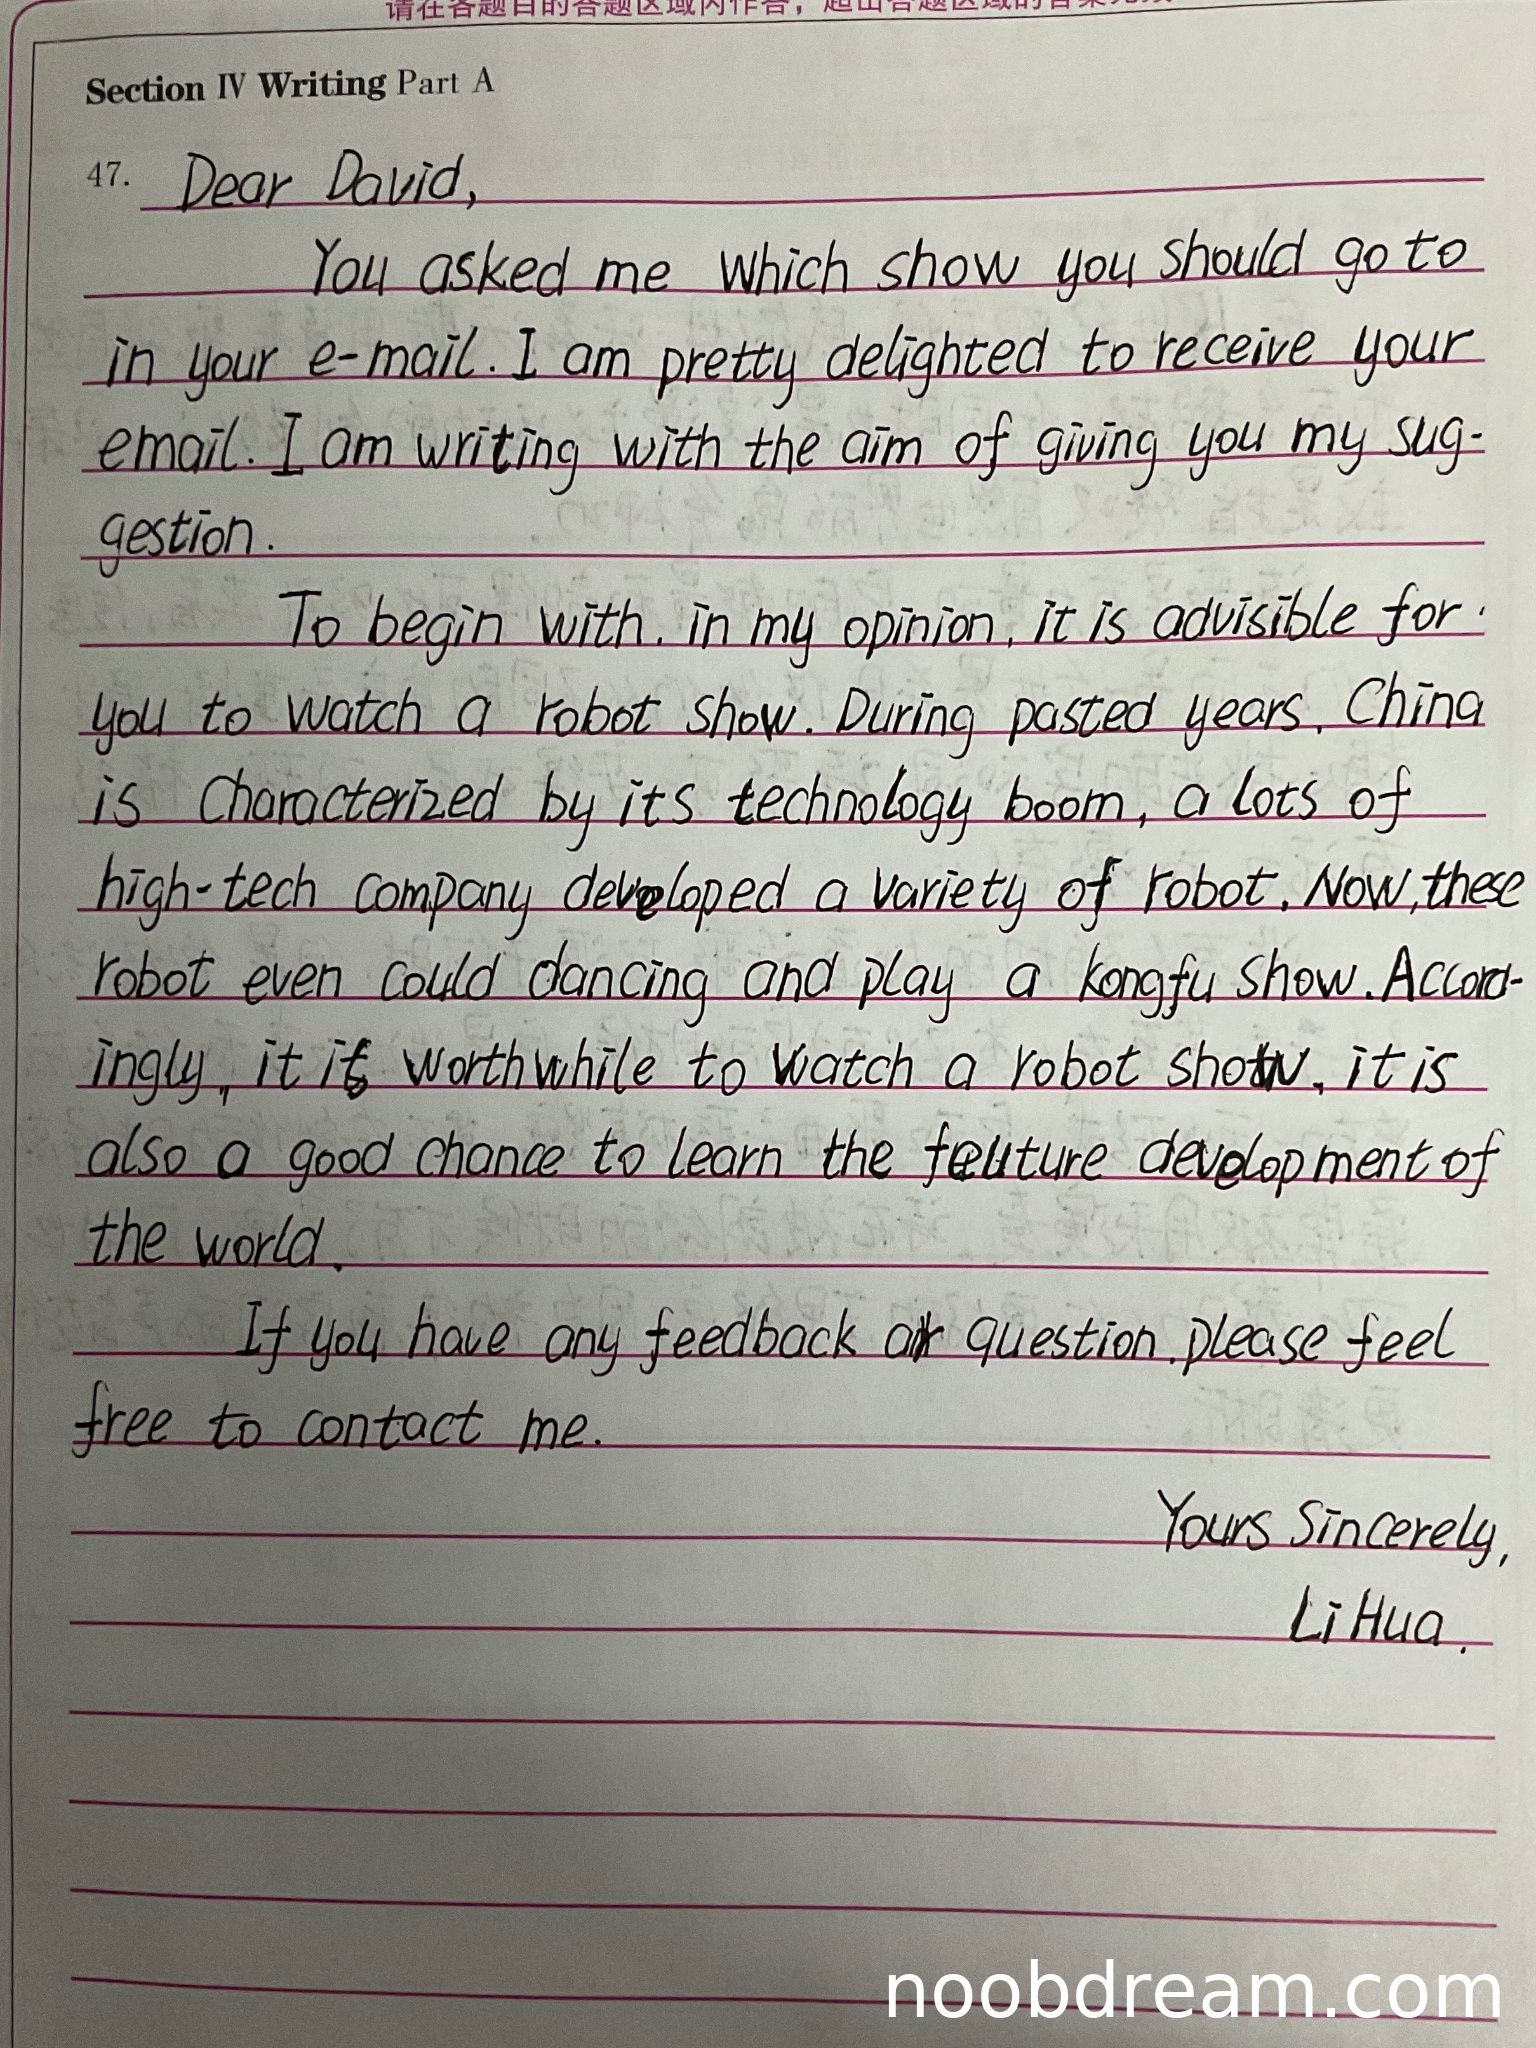 请在各题目的答题区域内作答，超出答题区域的答案无效
Section Ⅳ Writing Part A
47. Dear David,
You asked me which show you should go to
in your e-mail. I am pretty delighted to receive your
email. I am writing with the aim of giving you my sug-
gestion.
To begin with. in my opinion, it is advisible for
you to watch a robot show. During pasted years, China
is characterized by its technology boom, a lots of
high-tech company developed a variety of robot. Now, these
robot even could dancing and play a kongfu show. Accord-
ingly, it is worthwhile to watch a robot show, it is
also a good chance to learn the feuture development of
the world.
If you have any feedback or question, please feel
free to contact me.
Yours Sincerely,
Li Hua.
noobdream.com